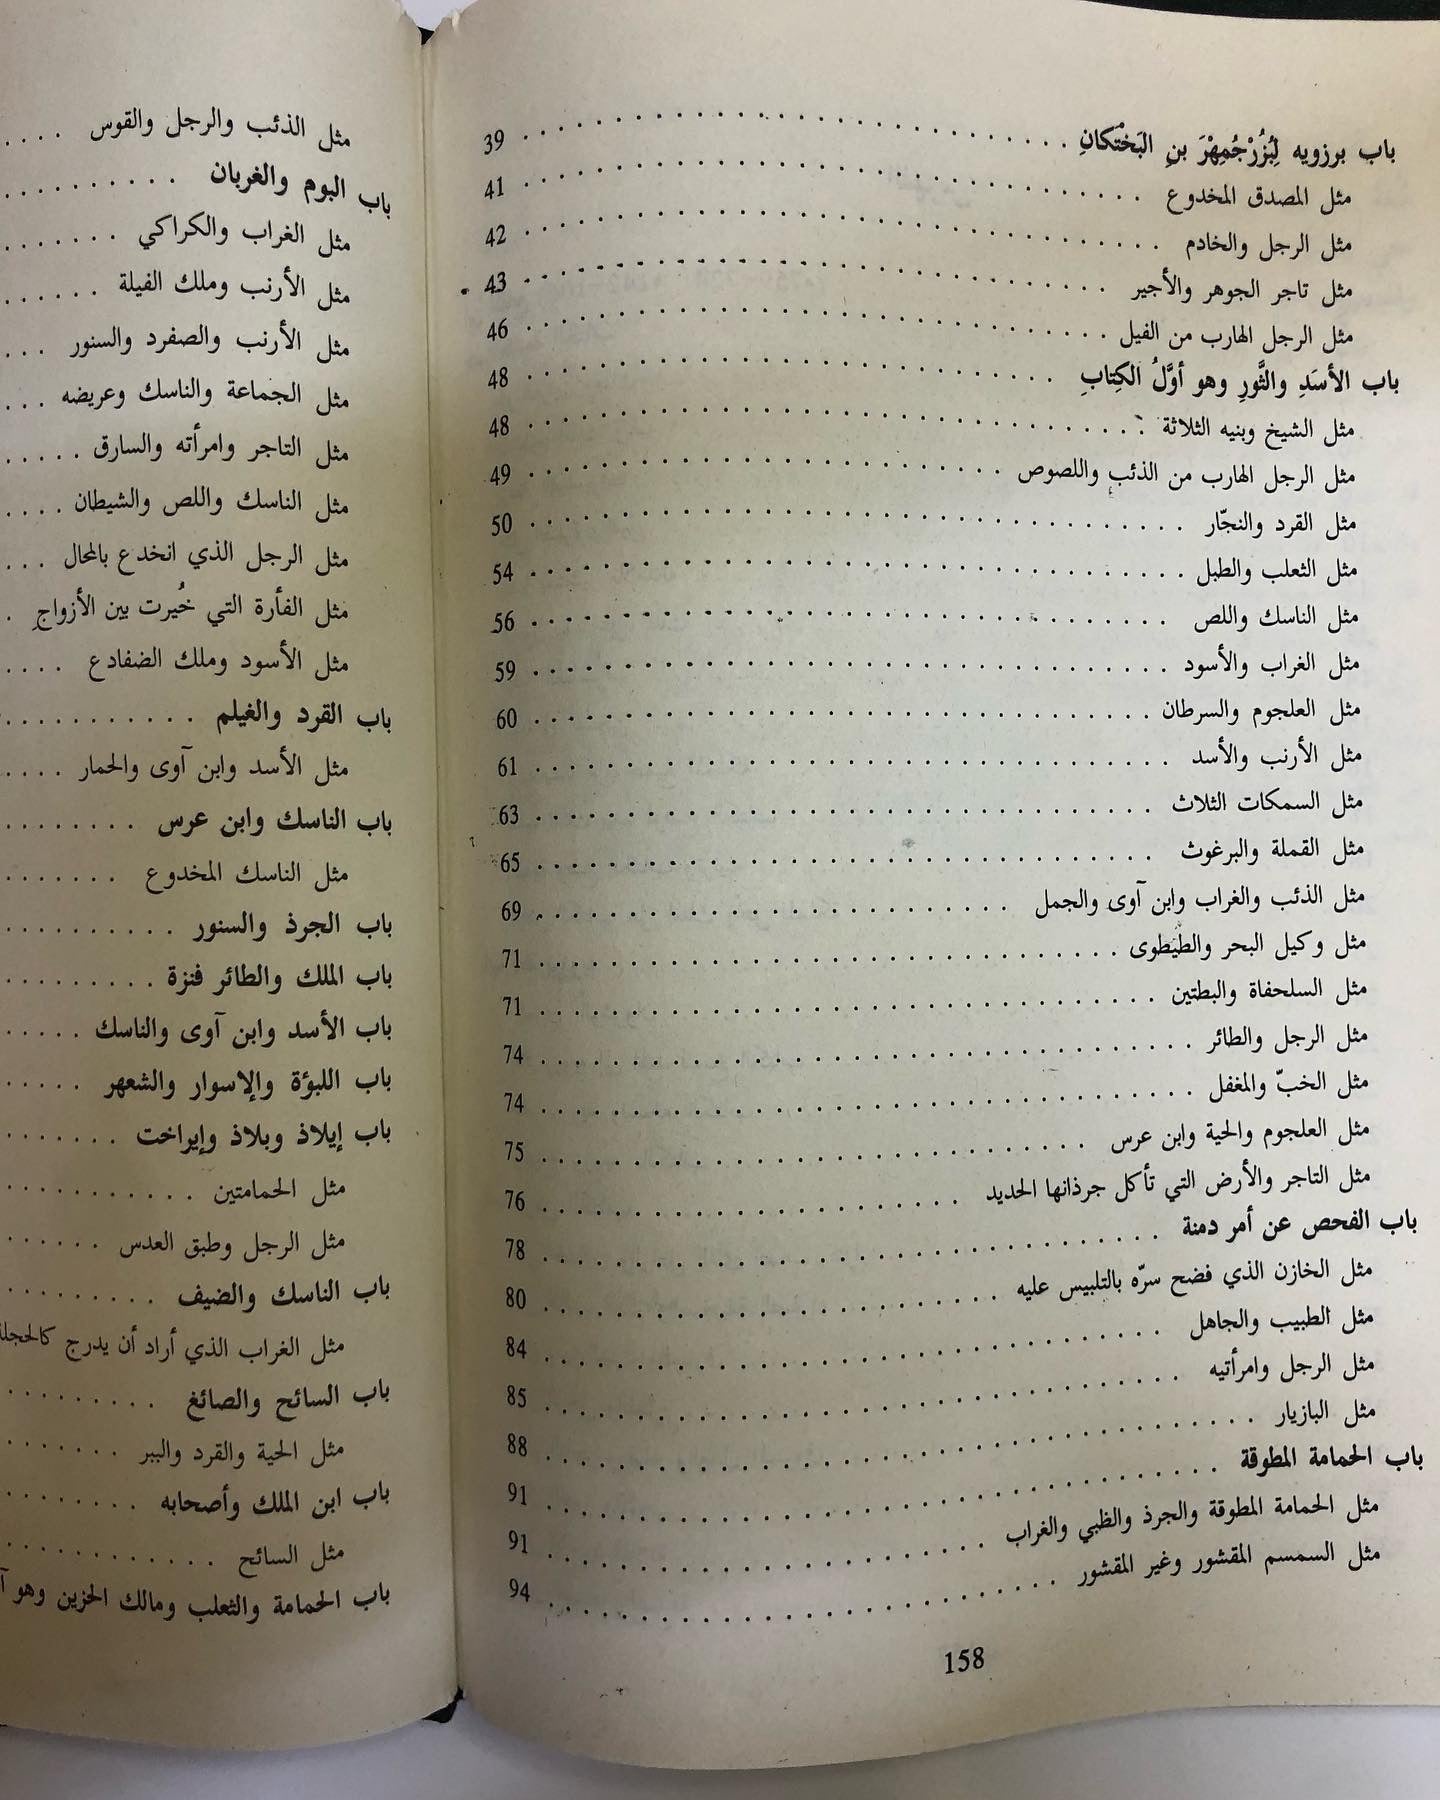 باب برزويه لِبُزُرْجُمِهْرَ بنِ البَخْتَكانِ . . . . . 39
مثل المصدق المخدوع . . . . . 41
مثل الرجل والخادم . . . . . 42
مثل تاجر الجوهر والأجير . . . . . 43
مثل الرجل الهارب من الفيل . . . . . 46
باب الأسَدِ والثَّورِ وهو أوَّلُ الكِتابِ . . . . . 48
مثل الشيخ وبنيه الثلاثة . . . . . 48
مثل الرجل الهارب من الذئب واللصوص . . . . . 49
مثل القرد والنجّار . . . . . 50
مثل الثعلب والطبل . . . . . 54
مثل الناسك واللص . . . . . 56
مثل الغراب والأسود . . . . . 59
مثل العلجوم والسرطان . . . . . 60
مثل الأرنب والأسد . . . . . 61
مثل السمكات الثلاث . . . . . 63
مثل القملة والبرغوث . . . . . 65
مثل الذئب والغراب وابن آوى والجمل . . . . . 69
مثل وكيل البحر والطيطوى . . . . . 71
مثل السلحفاة والبطتين . . . . . 71
مثل الرجل والطائر . . . . . 74
مثل الخبّ والمغفل . . . . . 74
مثل العلجوم والحية وابن عرس . . . . . 75
مثل التاجر والأرض التي تأكل جرذانها الحديد . . . . . 76
باب الفحص عن أمر دمنة . . . . . 78
مثل الخازن الذي فضح سرّه بالتلبيس عليه . . . . . 80
مثل الطبيب والجاهل . . . . . 84
مثل الرجل وامرأتيه . . . . . 85
مثل البازيار . . . . . 88
باب الحمامة المطوقة . . . . . 91
مثل الحمامة المطوقة والجرذ والظبي والغراب . . . . . 91
مثل السمسم المقشور وغير المقشور . . . . . 94
158
مثل الذئب والرجل والقوس . . . .
باب البوم والغربان . . . . .
مثل الغراب والكراكي . . . . .
مثل الأرنب وملك الفيلة . . . . .
مثل الأرنب والصفرد والسنور . . .
مثل الجماعة والناسك وعريضه . . .
مثل التاجر وامرأته والسارق . . . . .
مثل الناسك واللص والشيطان . . . .
مثل الرجل الذي انخدع بالمحال . . .
مثل الفأرة التي خُيرت بين الأزواج .
مثل الأسود وملك الضفادع . . . .
باب القرد والغيلم . . . . .
مثل الأسد وابن آوى والحمار . . . .
باب الناسك وابن عرس . . . . .
مثل الناسك المخدوع . . . . .
باب الجرذ والسنور . . . . .
باب الملك والطائر فنزة . . . . .
باب الأسد وابن آوى والناسك . . . . .
باب اللبؤة والإسوار والشعهر . . . . .
باب إيلاذ وبلاذ وإيراخت . . . . .
مثل الحمامتين . . . . .
مثل الرجل وطبق العدس . . . . .
باب الناسك والضيف . . . . .
مثل الغراب الذي أراد أن يدرج كالحجلة
باب السائح والصائغ . . . . .
مثل الحية والقرد والببر . . . . .
باب ابن الملك وأصحابه . . . . .
مثل السائح . . . . .
باب الحمامة والثعلب ومالك الحزين وهو